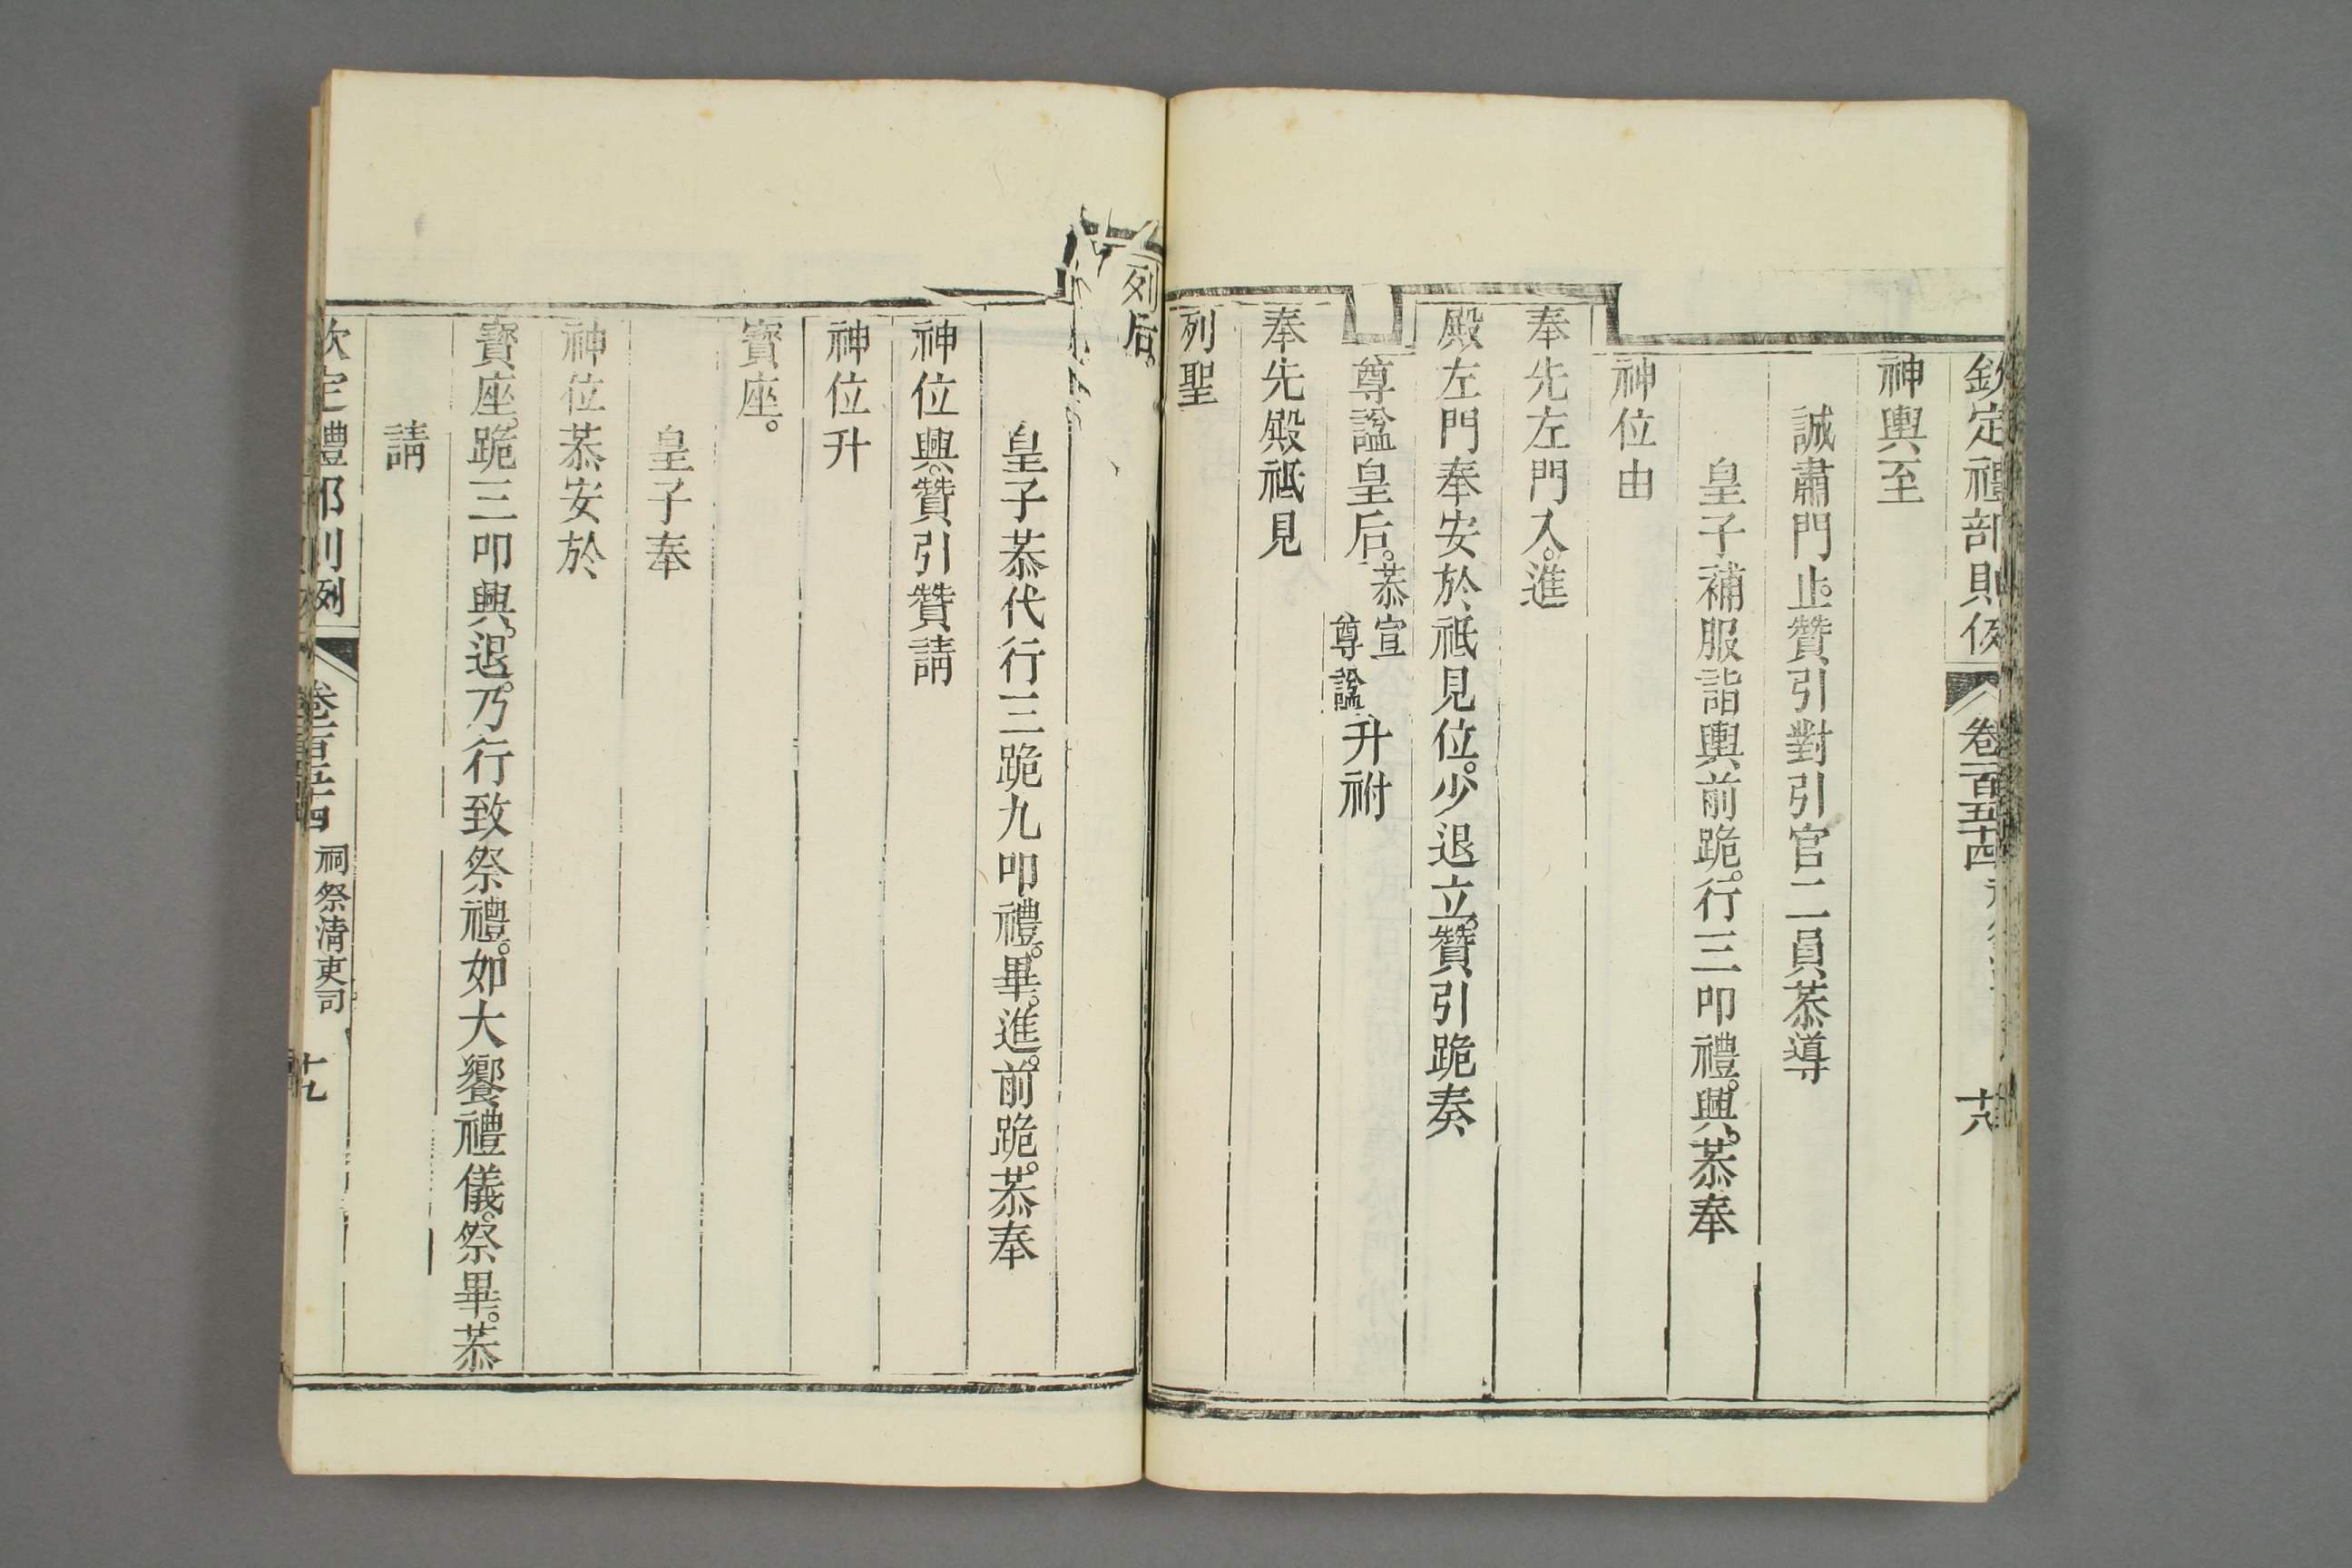 欽定禮部則例 卷一百五十四 十八
神輿至
誠肅門止。贊引對引官二員恭導
皇子補服詣輿前跪。行三叩禮。興。恭奉
神位由
奉先左門入。進
殿左門奉安於祗見位。少退立。贊引跪奏
尊諡皇后。恭宣尊諡升祔
奉先殿祗見
列聖
列后。
皇子恭代行三跪九叩禮。畢。進。前跪。恭奉
神位興。贊引贊請
神位升
寶座。
皇子奉
神位恭安於
寶座。跪三叩興。退。乃行致祭禮。如大饗禮儀。祭畢。恭
請
欽定禮部則例 卷一百五十四 祠祭清吏司 十九